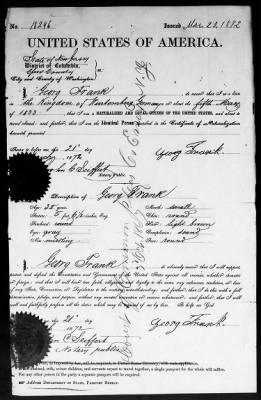 No. 18246 Issued Mar 22, 1872
UNITED STATES OF AMERICA.
State of New Jersey
District of Columbia,
Essex County
City and County of Washington
I Georg Frank do swear that I was born in
the Kingdom of Wurtemberg Germany on or about the fifth
of 1833 ; that I am a NATURALIZED AND LOYAL CITIZEN OF THE UNITED STATES, and about to
travel abroad; and further, that I am the Identical Person described in the Certificate of Naturalization
herewith presented.
Sworn to before me this 21st day
1872
Georg Frank
C Seiffert
Notary Public.
Description of Georg Frank
Age: 38 years
Mouth: small
Stature: 5 feet inches, Eng.
Chin: round
Forehead: round
Hair: light brown
Eyes: gray
Complexion: sound
Nose: middling
Face: round
I, Georg Frank do solemnly swear that I will support,
protect, and defend the Constitution and Government of the United States against all enemies, whether domestic
or foreign; and that I will bear true faith, allegiance, and loyalty to the same, any ordinance, resolution, or law
of any State, Convention, or Legislature to the contrary notwithstanding; and further, that I do this with a full
determination, pledge, and purpose, without any mental reservation or evasion whatsoever; and further, that I will
well and faithfully perform all the duties which may be required of me by law. So help me God.
21st day
1872
Georg Frank
C Seiffert
Notary public
husband, wife, minor children, and servants expect to travel together, a single passport for the whole will suffice.
For any other person in the party a separate passport will be required.
Address DEPARTMENT OF STATE, PASSPORT BUREAU.